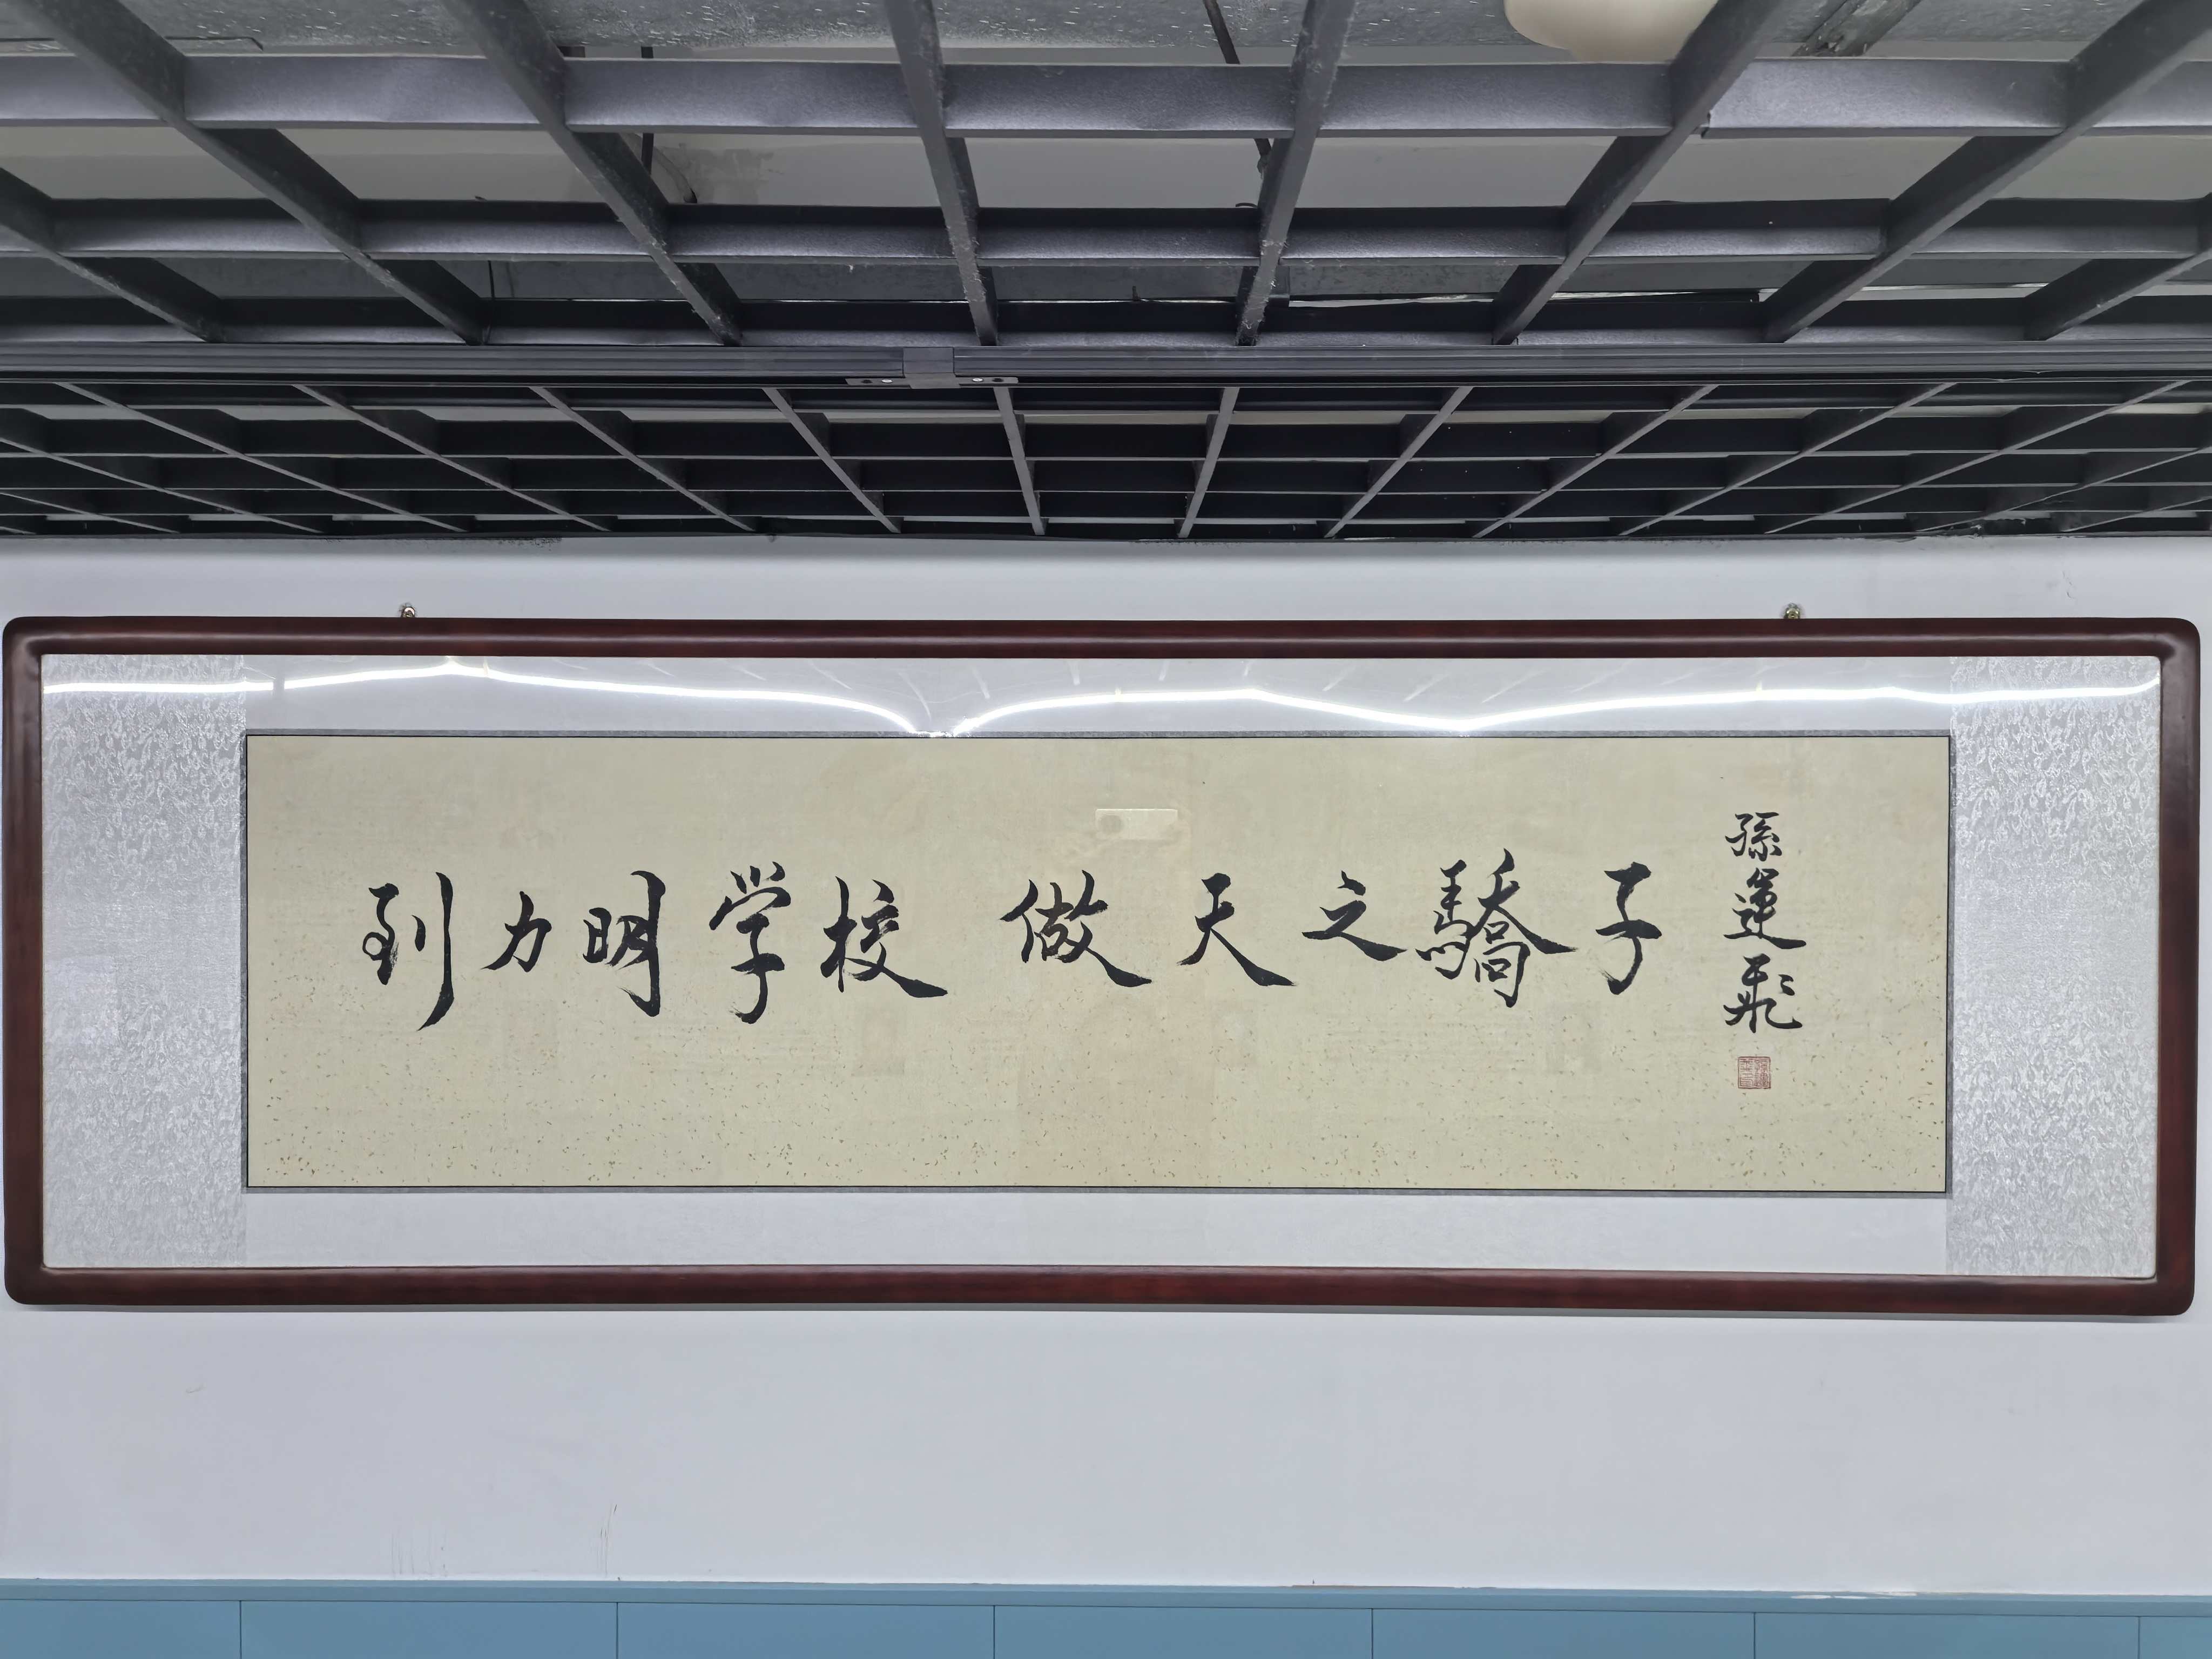 到力明学校 做天之驕子
孫運飛